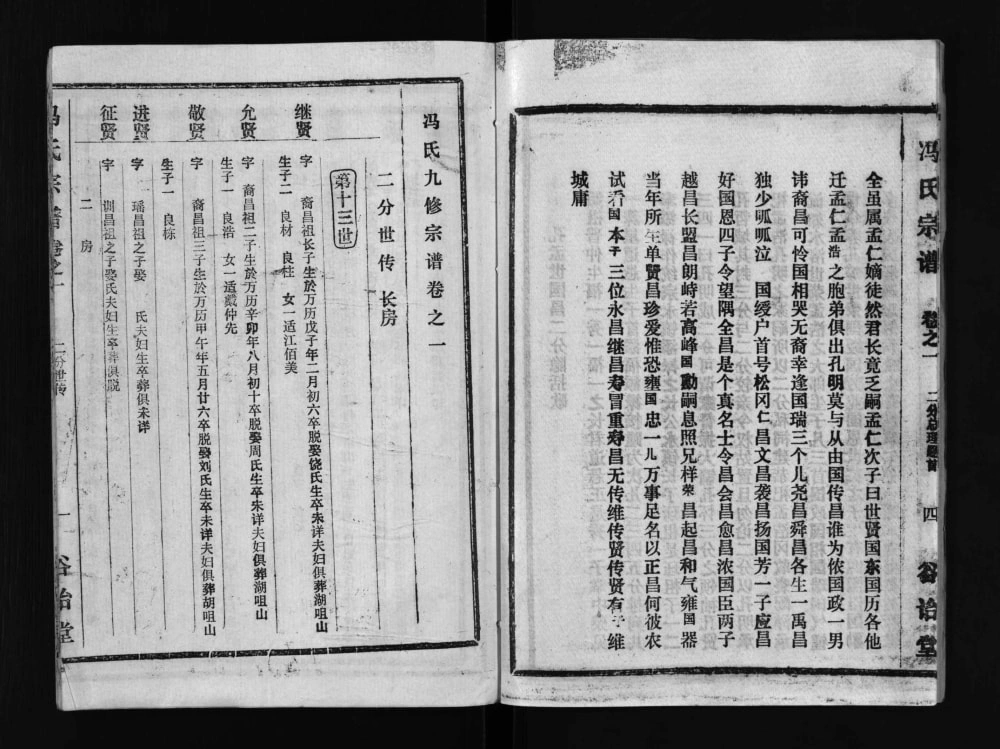 冯氏宗谱 卷之一 二分总理题首 四 谷诒堂
全虽属孟仁嫡徒然君长竟乏嗣孟仁次子曰世贤国东国历各他
迁孟仁孟浩之胞弟俱出孔明莫与从由国传昌谁为侬国政一男
讳裔昌可怜国相哭无裔幸逢国瑞三个儿尧昌舜昌各生一禹昌
独少呱呱泣 国绶户首号松冈仁昌文昌袭昌扬国芳一子应昌
好国恩四子令望隅全昌是个真名士令昌会昌愈昌浓国臣两子
越昌长盟昌朗峙若高峰国勳嗣息照兄样荣昌起昌和气雍国器
当年所生单贤昌珍爱惟恐壅国忠一儿万事足名以正昌何彼农
试看国本干三位永昌继昌寿冒重寿昌无传维传贤传贤有子维
城庸
冯氏九修宗谱卷之一
二分世传 长房
第十三世
继贤 字 裔昌祖长子生於万历戊子年二月初六卒脱娶饶氏生卒未详夫妇俱葬湖咀山
生子二 良材 良柱 女一适江佰美
允贤 字 裔昌祖二子生於万历辛卯年八月初十卒脱娶周氏生卒未详夫妇俱葬湖咀山
生子一 良浩 女一适戴仲先
敬贤 字 裔昌祖三子生於万历甲午年五月廿六卒脱娶刘氏生卒未详夫妇俱葬胡咀山
生子一 良栋
进贤 字 瑶昌祖之子娶 氏夫妇生卒葬俱未详
征贤 字 训昌祖之子娶氏夫妇生卒葬俱脱
二 房
冯氏宗谱 卷之一 二分世传 一 谷诒堂